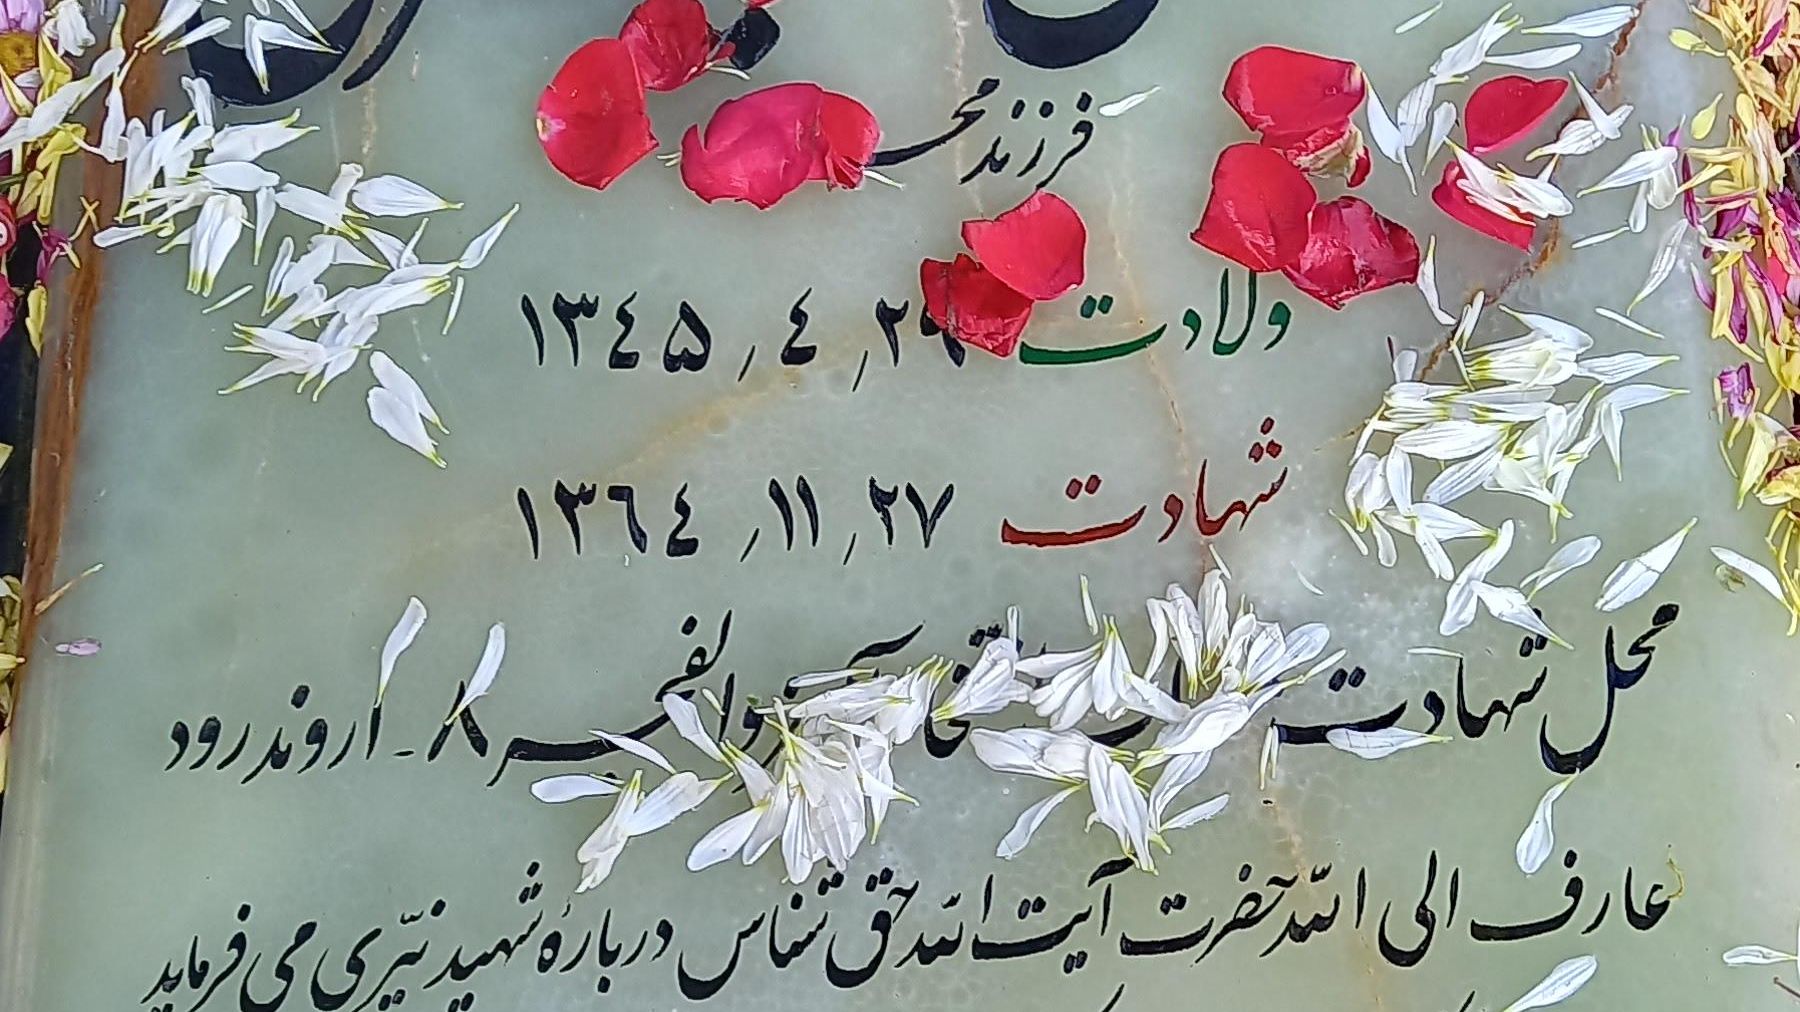 فرزند
ولادت ٢٩ ، ٤ ، ١٣٤٥
شهادت ٢٧ ، ١١ ، ١٣٦٤
محل شهادت والفجر ٨ - اروند رود
عارف الی الله حضرت آیت الله حق شناس دربارهٔ شهید نیّری می فرماید